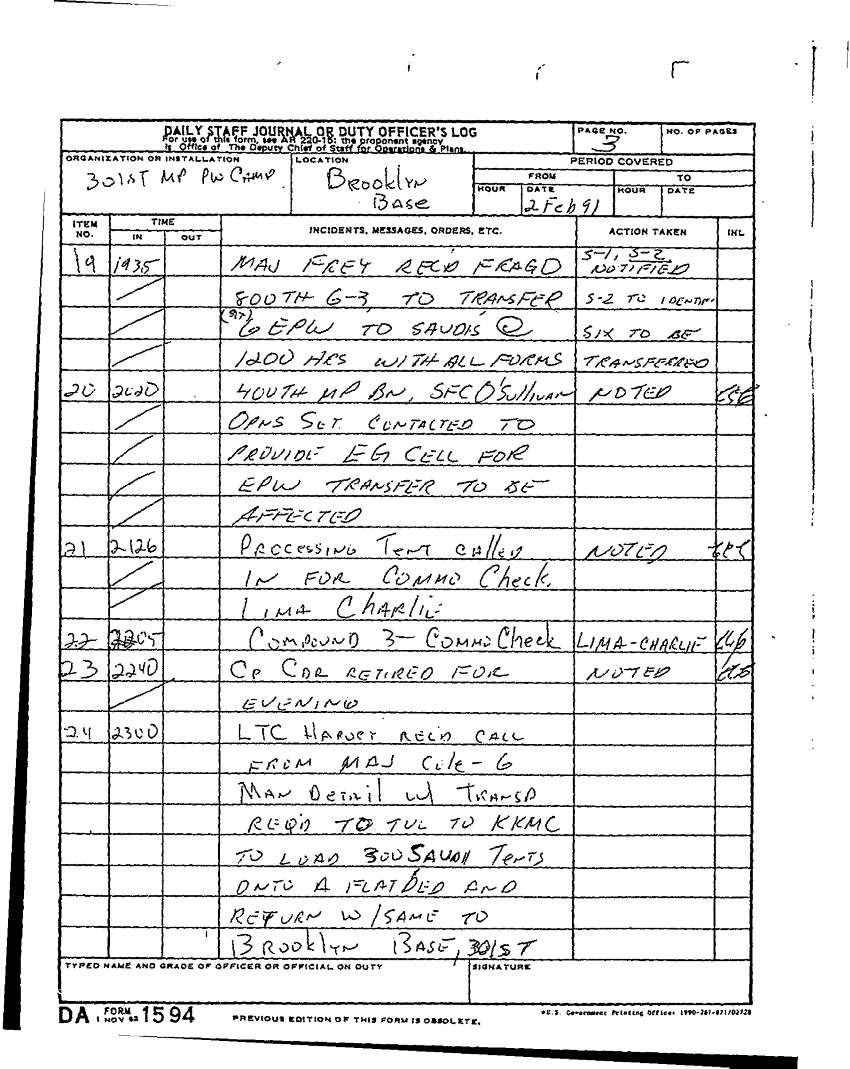 DAILY STAFF JOURNAL OR DUTY OFFICER'S LOG
For use of this form, see AR 220-15; the proponent agency
is Office of The Deputy Chief of Staff for Operations & Plans.
PAGE NO.
3
NO. OF PAGES
ORGANIZATION OR INSTALLATION
301ST MP PW CAMP
LOCATION
Brooklyn
Base
PERIOD COVERED
FROM
TO
HOUR
DATE
2 Feb 91
HOUR
DATE
ITEM NO.
TIME
IN
OUT
INCIDENTS, MESSAGES, ORDERS, ETC.
ACTION TAKEN
INL
19 1935 MAJ FREY REC'D FRAGO S-1, S-2 NOTIFIED
800TH G-3, TO TRANSFER S-2 TO IDENTIFY
(SIX) 6 EPW TO SAUDIS @ SIX TO BE
1200 HRS WITH ALL FORMS TRANSFERRED
20 2020 400TH MP BN, SFC O'Sullivan NOTED
OPNS SGT. CONTACTED TO
PROVIDE EG CELL FOR
EPW TRANSFER TO BE
AFFECTED
21 2126 PROCESSING TENT CALLED NOTED
IN FOR COMMO Check.
LIMA CHARLIE
22 2205 COMPOUND 3- COMMO Check LIMA-CHARLIE
23 2240 CP CDR RETIRED FOR NOTED
EVENING
24 2300 LTC HARVEY REC'D CALL
FROM MAJ Cole - 6
MAN DETAIL W/ TRANSP
REQ'D TO TVL TO KKMC
TO LOAD 300 SAUDI TENTS
ONTO A FLATBED AND
RETURN W/SAME TO
BROOKLYN BASE, 301ST
TYPED NAME AND GRADE OF OFFICER OR OFFICIAL ON DUTY
SIGNATURE
DA FORM 1594
1 NOV 62
PREVIOUS EDITION OF THIS FORM IS OBSOLETE.
*U.S. Government Printing Office: 1990-261-871/02728